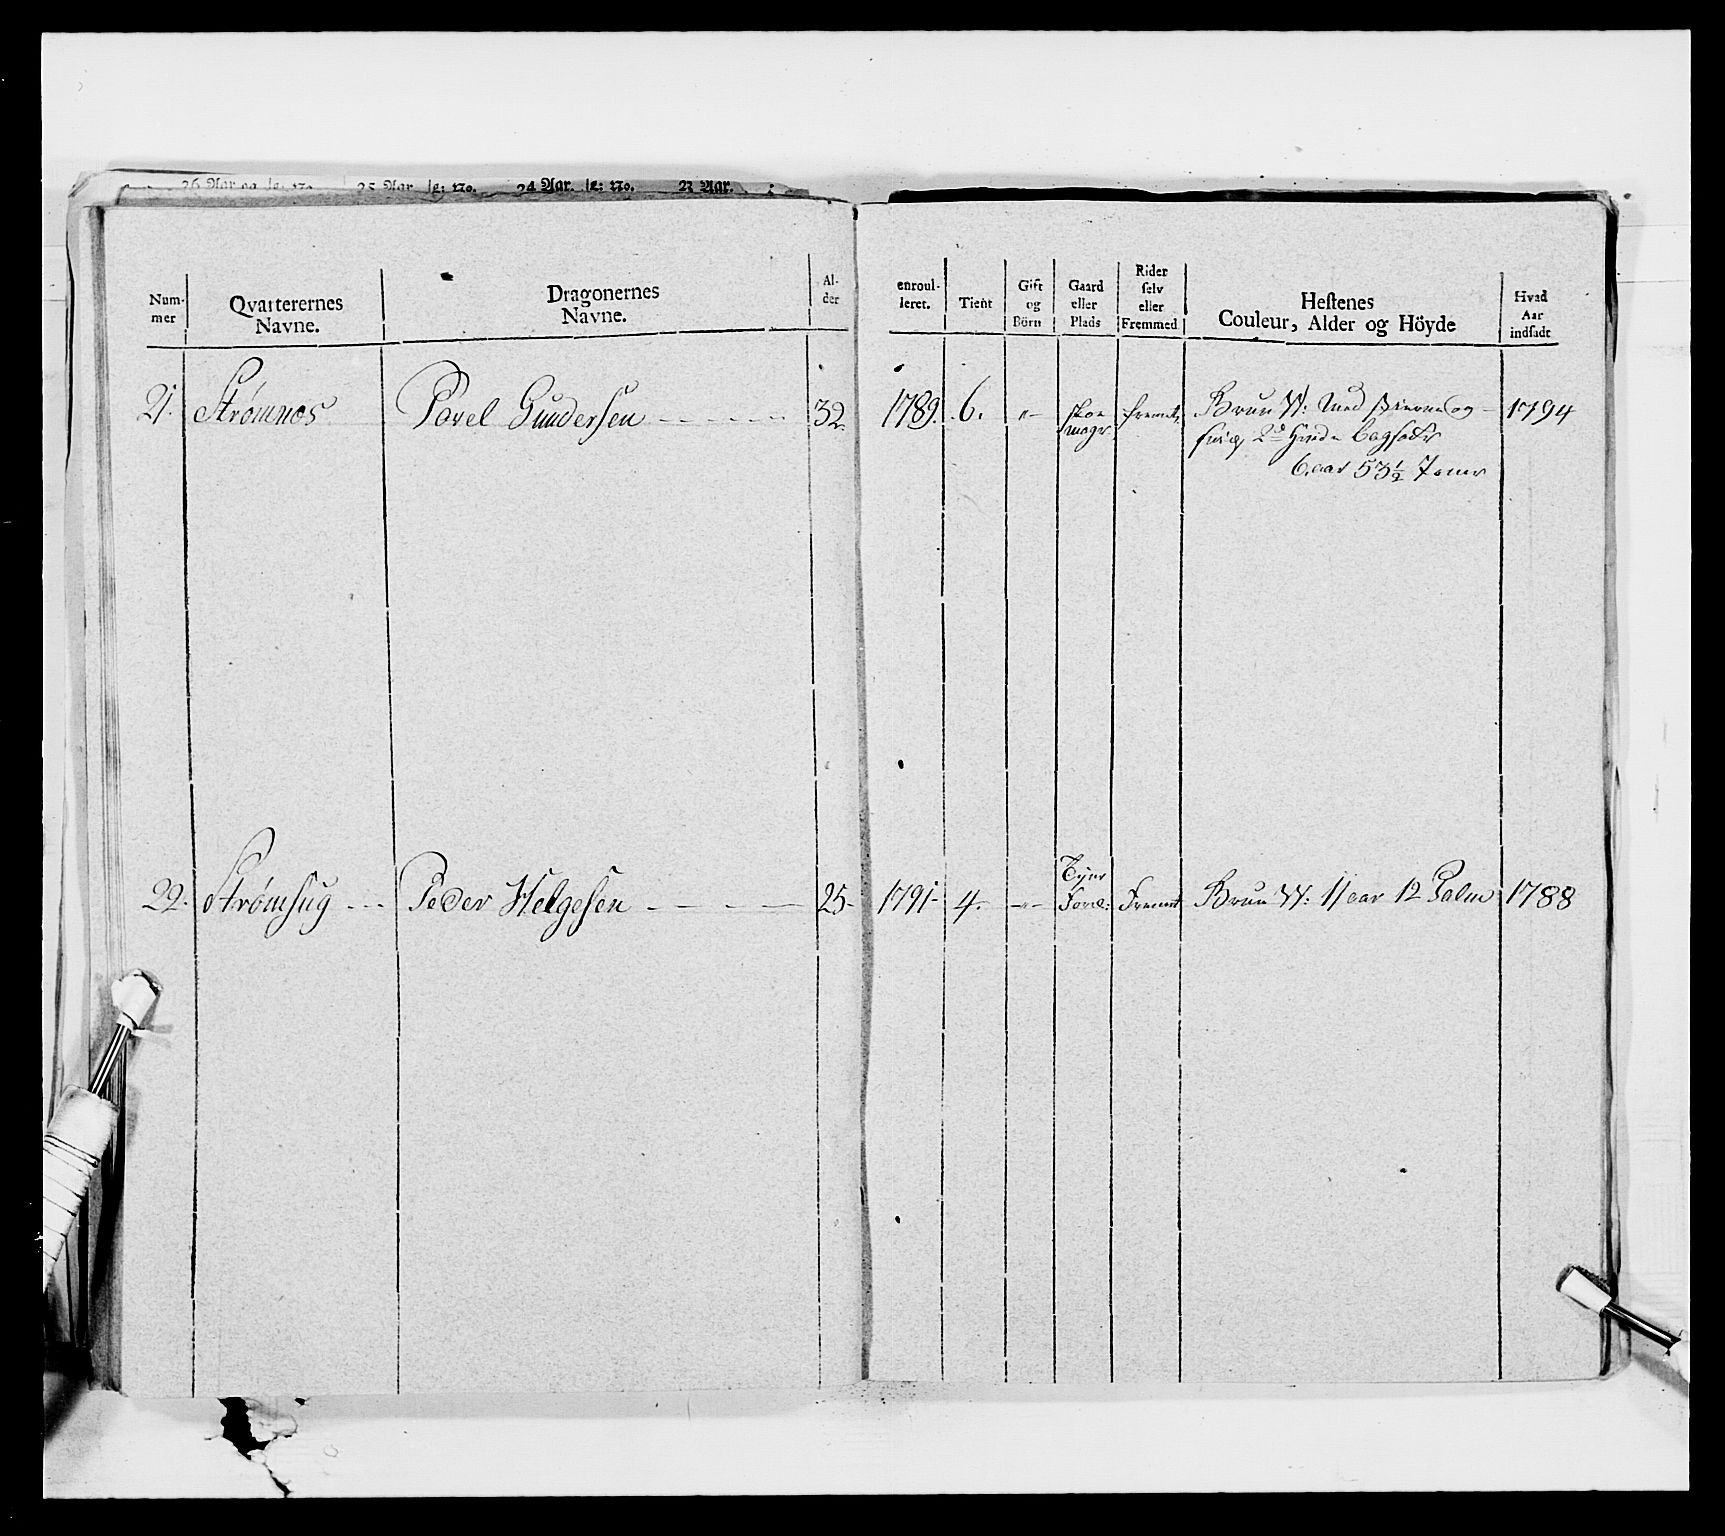 26 Aar og lg: No. 25 Aar lg: No. 24 Aar. lg: No. 23 Aar.
Num-
mer
Qvarterernes
Navne.
Dragonernes
Navne.
Al-
der
enroul-
leret.
Tient
Gift
og
Börn
Gaard
eller
Plads
Rider
selv
eller
Fremmed
Hestenes
Couleur, Alder og Höyde
Hvad
Aar
indsadt
21. Strømnæs Povel Gundersen 32 1789. 6. „ Skoe
mager fremt Brun W: Med stierne og 1794
snip, 2de hvide bagfødder
6. aar 53½ Tomr
22. Strømsug Peder Helgesen 25 1791 4. „ Tyner
Foræ: Fremt Brun W: 11 aar 12 Palm 1788